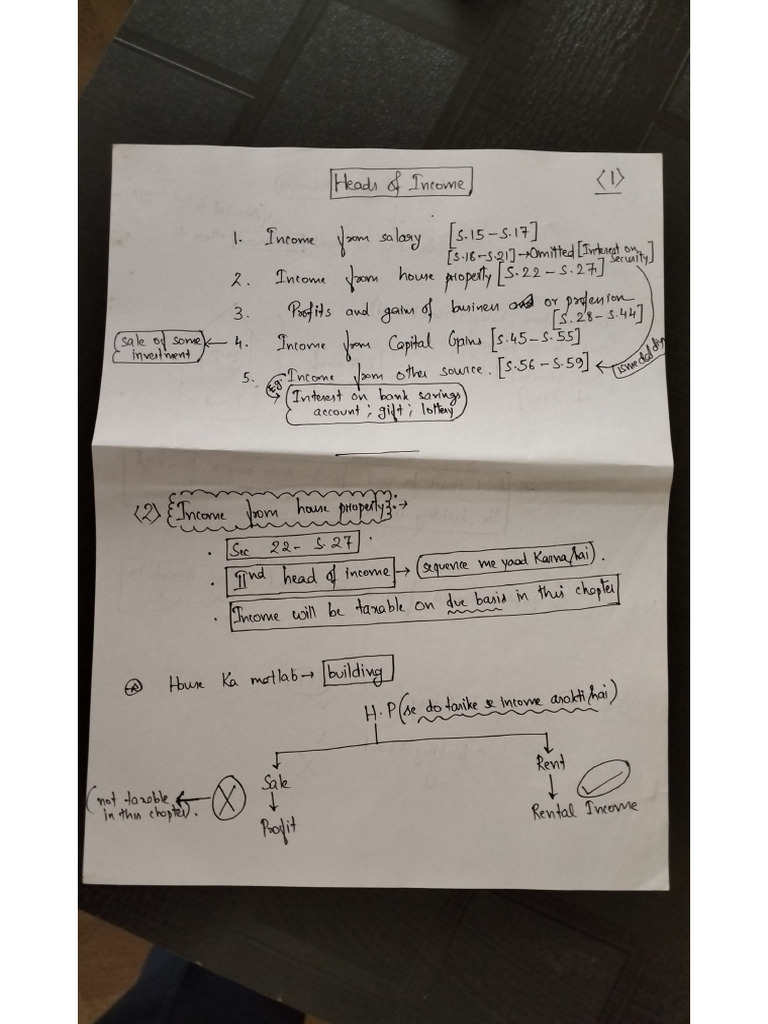 Heads of Income
<1>
1. Income from salary [S.15 – S.17]
[S.18 – S.21] → Omitted [Interest on security]
2. Income from house property [S.22 – S.27]
3. Profits and gains of business or profession
[S.28 – S.44]
sale of some investment ← 4. Income from Capital Gains [S.45 – S.55]
5. Income from other source. [S.56 – S.59] ←
Eg → Interest on bank savings
account ; gift ; lottery
<2> Income from house property :- →
. Sec 22 – S.27 .
. IInd head of income → sequence me yaad Karna hai .
. Income will be taxable on due basis in this chapter
House Ka matlab → building
H.P (se do tarike se income asakti hai)
Sale
Rent
↓
↓
(not taxable in this chapter). ← X
Profit
Rental Income ✓